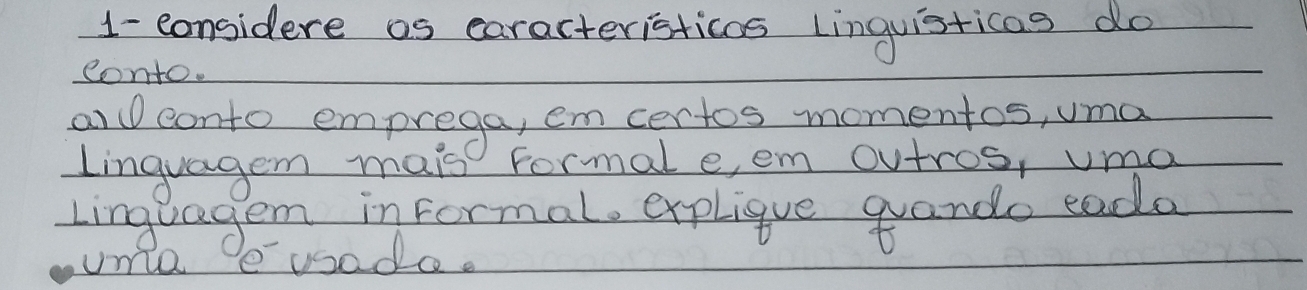 1- considere as características linguísticas do
conto.
a) O conto emprega, em certos momentos, uma
linguagem mais formal e, em outros, uma
linguagem informal. explique quando cada
uma é usada.